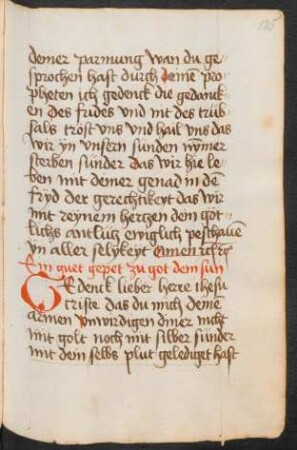 135
deiner parmung wan du ge-
sprochen hast durch deine pro-
pheten ich gedenck die gedanck-
en des frides vnd nit des trüb-
sals tröst vns vnd hail vns das
wir yn vnsern sunden nÿmer
sterben sunder das wir hie le-
ben mit deiner genad in dē
fryd der gerechtikeyt das wir
mit reynem hertzen dein got-
lichs antlütz ewiglich peschauen
yn aller selykeyt Amen
Ein guet gepet zu got dem sun
Gedenk lieber herre ihesu
criste das du mich deinē
armen vnwirdigen diner nicht
mit golt noch mit silber sunder
mit dem selbs plut gelediget hast